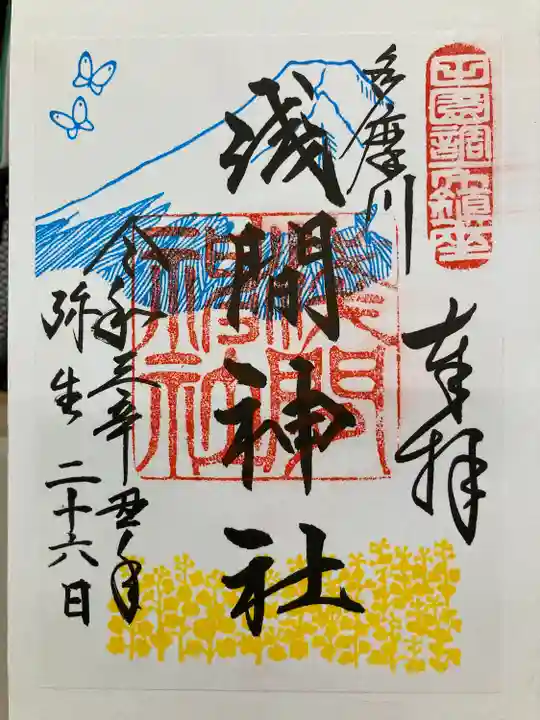 田園調布鎮座
奉拝
多摩川
浅間神社
令和三辛丑年
弥生二十六日